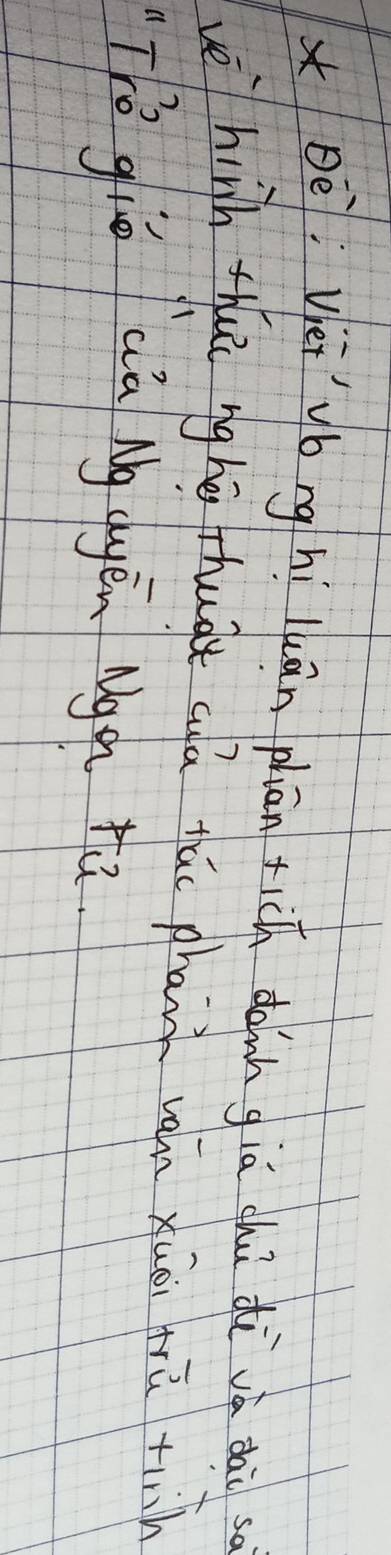 * Đề: Viết vb nghị luận phân tích đánh giá chủ đề và đặc sắ
về hình thức nghệ thuật của tác phẩm văn xuôi trữ tình
"Trở gió" của Nguyễn Ngọc Tư.